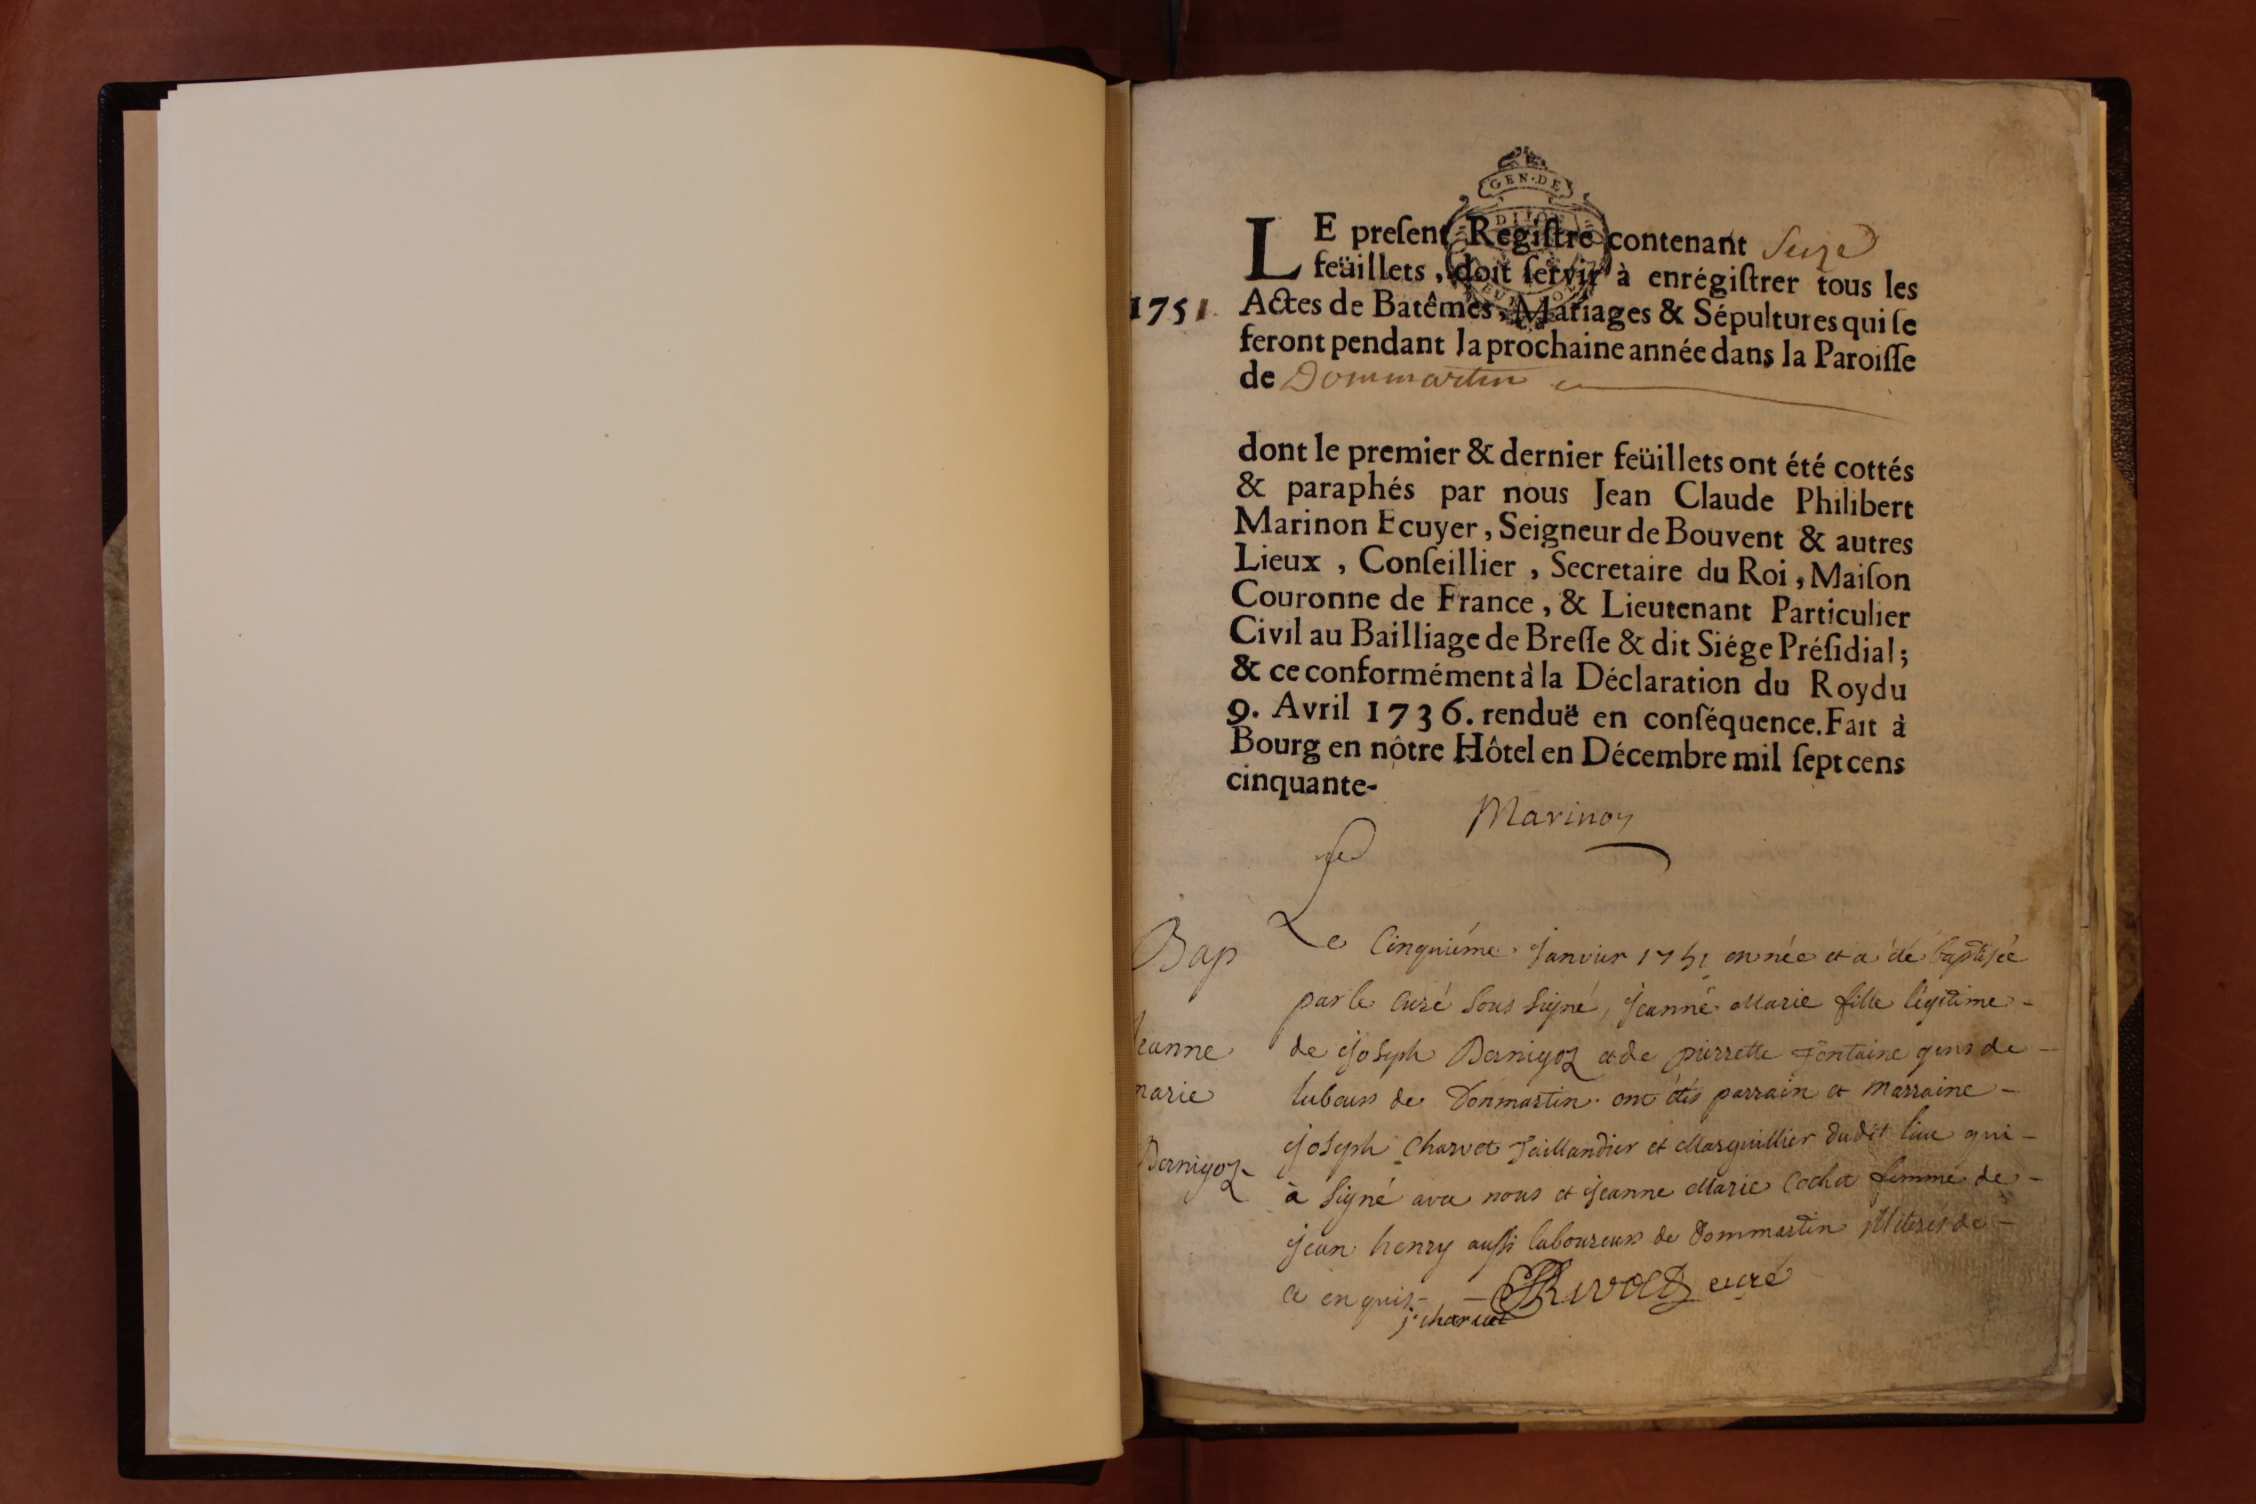 GEN. DE
DIJON
LE preſent Regiſtre contenant Seize
feüillets, doit ſervir à enrégiſtrer tous les
1751
Actes de Batêmes, Mariages & Sépultures qui ſe
feront pendant la prochaine année dans la Paroiſſe
de Dommartin
dont le premier & dernier feüillets ont été cottés
& paraphés par nous Jean Claude Philibert
Marinon Ecuyer, Seigneur de Bouvent & autres
Lieux, Conſeillier, Secretaire du Roi, Maiſon
Couronne de France, & Lieutenant Particulier
Civil au Bailliage de Breſſe & dit Siége Préſidial;
& ce conformément à la Déclaration du Roy du
9. Avril 1736. renduë en conſéquence. Fait à
Bourg en nôtre Hôtel en Décembre mil ſept cens
cinquante-
Marinon
Bap
Jeanne
marie
Bernigoz
Le Cinquiéme Janvier 1751 en née et a été baptisée
par le Curé Sous Signé, Jeanne Marie fille légitime -
de Joseph Bernigoz et de pierrette Fontaine gens de -
labeurs de Donmartin. ont étés parrain et Marraine -
Joseph Charvet Taillandier et Marguillier dudit lieu qui -
à Signé avec nous et Jeanne Marie Cochet femme de -
Jean henry aussi laboureurs de Dommartin illiterés de -
ce enquis - Rivod curé
j. charvet